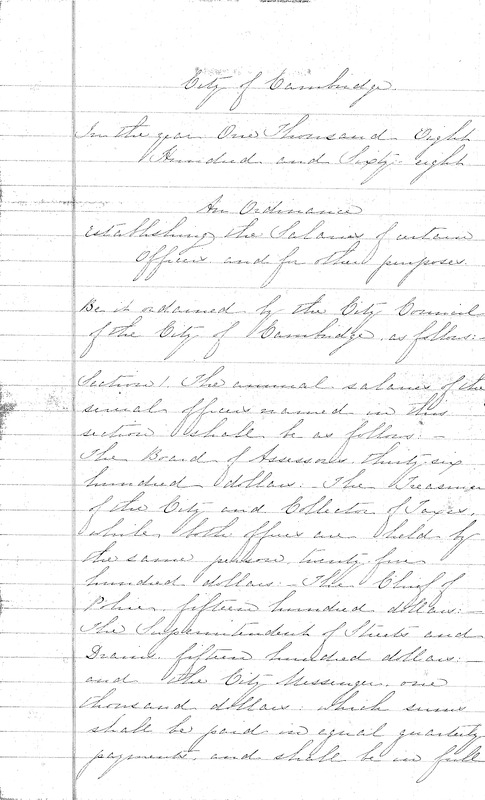 City of Cambridge.
In the year One Thousand Eight
Hundred and Sixty-eight
An Ordinance
establishing the Salaries of certain
Officers and for other purposes.
Be it ordained by the City Council
of the City of Cambridge, as follows:-
Section 1. The annual salaries of the
several officers named in this
section shall be as follows:-
The Board of Assessors, thirty six
hundred dollars:- The Treasurer
of the City and Collector of Taxes,
while both offices are held by
the same person, twenty five
hundred dollars:- The Chief of
Police, fifteen hundred dollars:-
The Superintendent of Streets and
Drains, fifteen hundred dollars:-
and the City Messenger, one
thousand dollars: which sums
shall be paid in equal quarterly
payments, and shall be in full